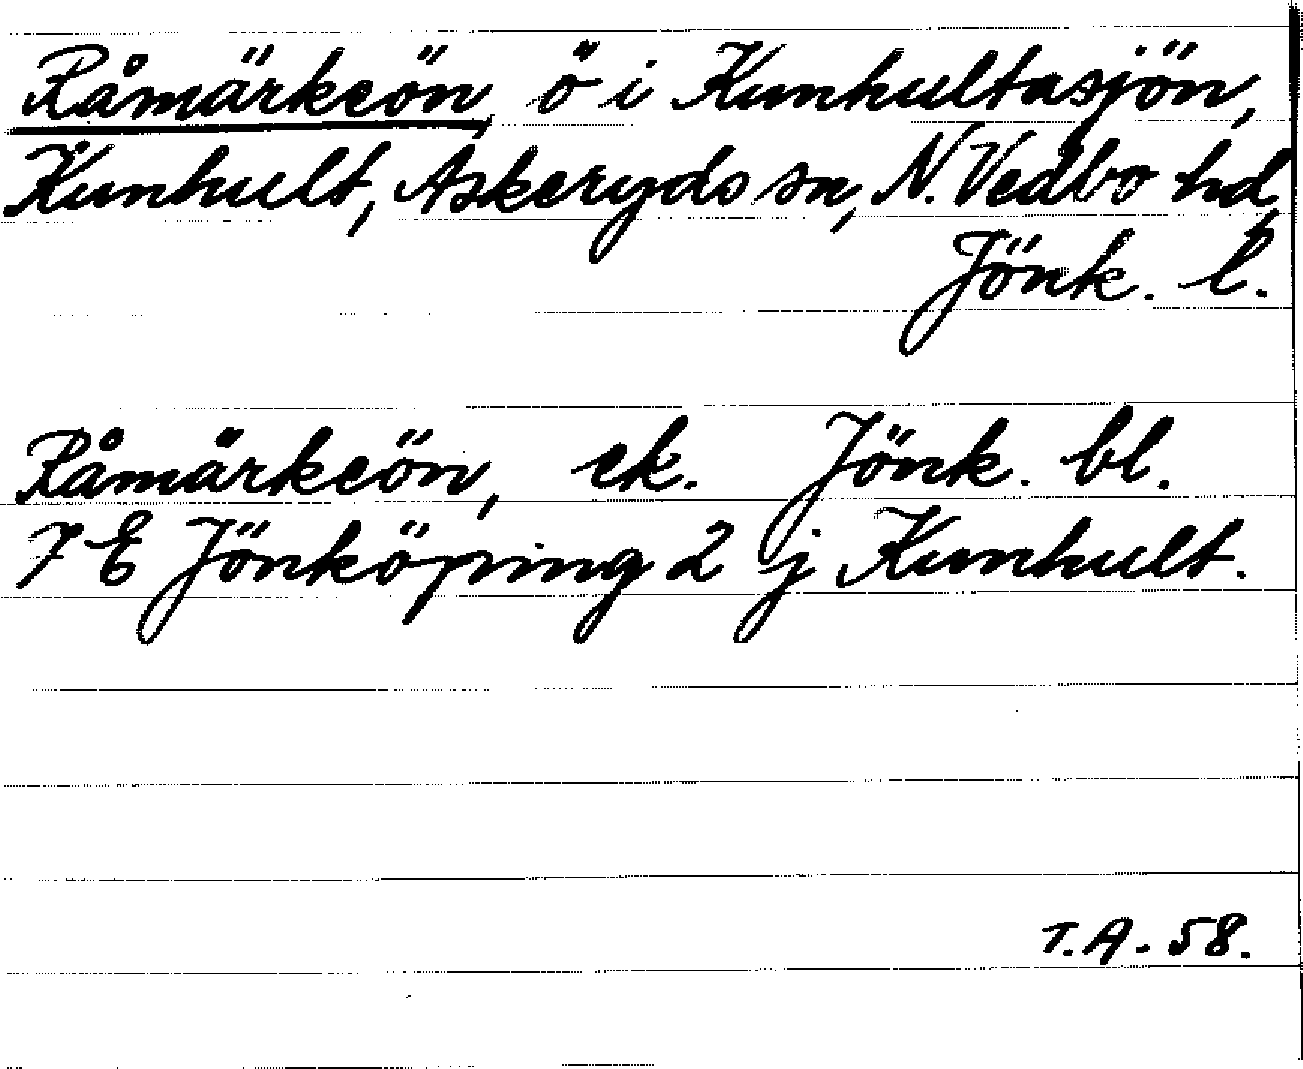 Råmärkeön, ö i Kunhultasjön,
Kunhult, Askeryds sn, N. Vedbo hd,
Jönk. l.
Råmärkeön, ek. Jönk. bl.
7 E Jönköping 2 j Kunhult.
T.A. 58.